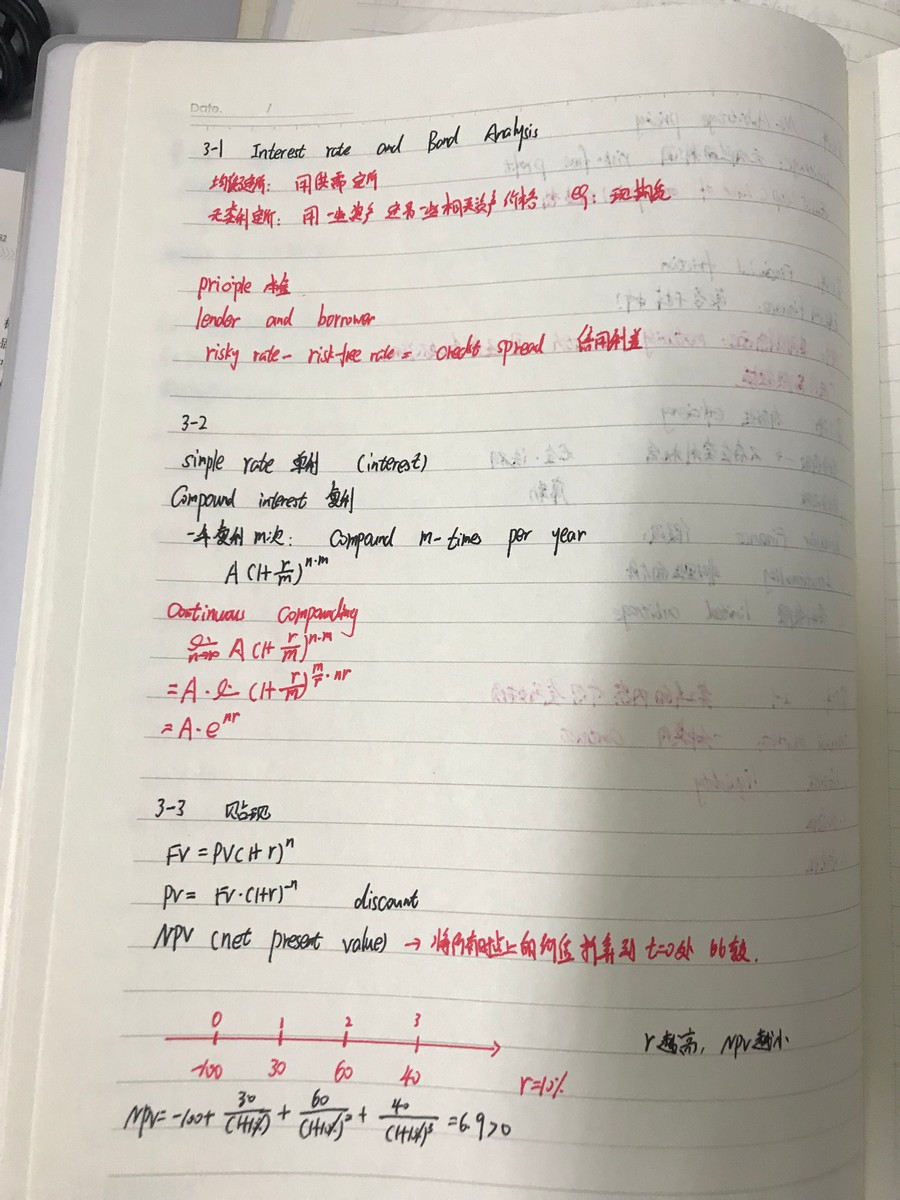 Date. /
3-1 Interest rate and Bond Analysis
均衡定价: 用供需定价
无套利定价: 用一些资产定另一些相关资产价格 eg: 现构货
priciple 本金
lender and borrower
risky rate - risk-free rate = credit spread 信用利差
3-2
simple rate 单利 (interest)
Compound interest 复利
一年复利m次: Compound m-times per year
A(1+r/m)^n·m
Continuous Compounding
A(1+r/m)^n·m
=A· (1+r/m)^m/r·nr
=A·e^nr
3-3 贴现
FV=PV(1+r)^n
PV= FV·(1+r)^-n discount
NPV (net present value) → 将所有时点上的价值折算到 t=0处 比较.
0 1 2 3
r越高, NPV越小
-100 30 60 40 r=10%
NPV=-100+ 30/(1+10%) + 60/(1+10%)^2 + 40/(1+10%)^3 =6.9>0